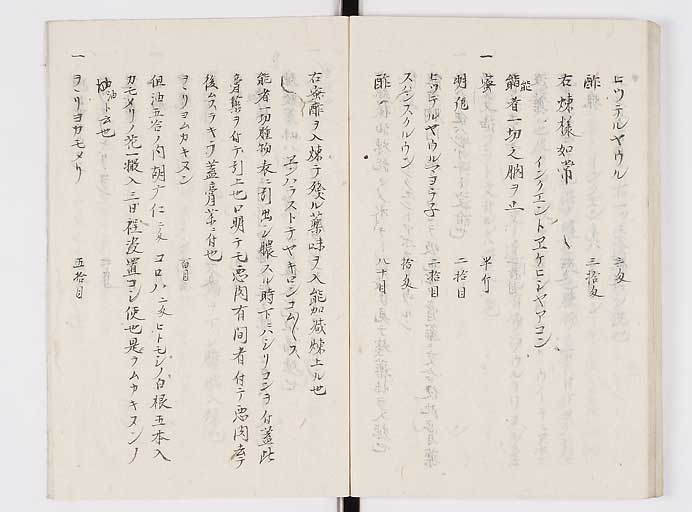 ヒツテルヤウル 三匁
酢 三拾匁
右煉様如常
インクエントヱケヒシヤヤコン
能者一切之腑ヲ止
一 蜜 半斤
明礬 二拾目
ヒツテルヤウルマヨテ子 二拾目
スハンスクルウン 拾匁
酢 八十目
右蜜酢ヲ入煉テ残ル薬味ヲ入能加減煉上ル也
能者一切腫物表ニ引出シ膿スル時下ニハシリコンヲ付蓋此
膏薬ヲ付テ引上也口明テモ悪肉有間者付テ悪肉
後ムスラキヲ蓋膏薬ニ付也
ヲヽリヨムカキヌン 百目
但油五合ノ内胡广仁二匁コロハ二匁ヒトモジノ白根五本入
カモメリノ花一撮入三日程漬置コシ使也是ヲムカキヌンノ
油ト云也
一 ヲヽリヨカモメリ 五拾目